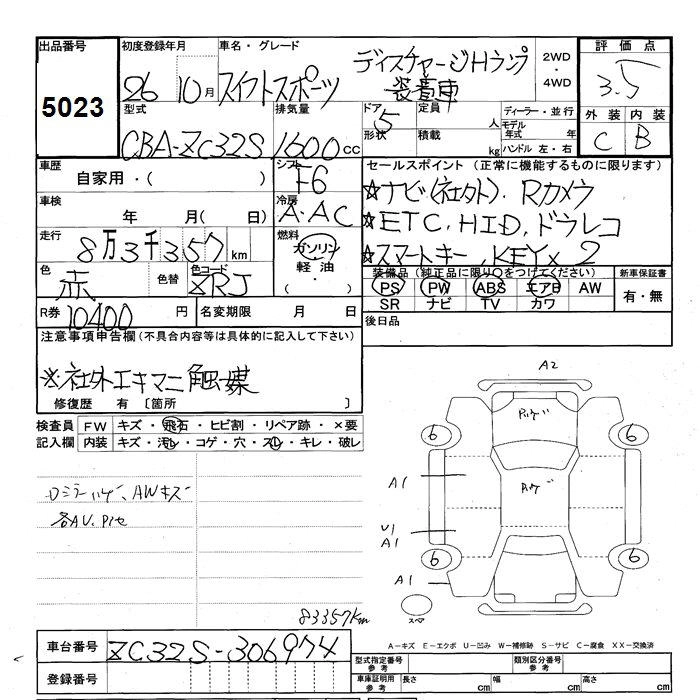 出品番号
5023
初度登録年月
26 10月
車名・グレード
スイフトスポーツ
ディスチャージHランプ
装着車
2WD
・
4WD
評価点
3.5
外装 内装
C B
型式
CBA-ZC32S
排気量
1600cc
ドア
5
形状
定員
人
積載
kg
ディーラー・並行
モデル
年式 年
ハンドル 左・右
車歴
自家用・( )
シフト
F6
車検
年 月( 日)
冷房
A・AC
走行
8万3千357km
燃料
ガソリン
軽油
( ・ )
色
赤
色替
色コード
ZRJ
R券
10400円
名変期限 月 日
セールスポイント(正常に機能するものに限ります)
☆ナビ(社外)、Rカメラ
☆ETC、HID、ドラレコ
☆スマートキー、KEY×2
装備品(純正品に限り○をつけてください)
PS PW ABS エアB AW
SR ナビ TV カワ
新車保証書
有・無
後日品
注意事項申告欄(不具合内容等は具体的に記入して下さい)
※社外エキマニ触媒
修復歴 有〔箇所 〕
検査員
記入欄
FW キズ・飛石・ヒビ割・リペア跡・×要
内装 キズ・汚レ・コゲ・穴・スレ・キレ・破レ
ロミラーハゲ、AWキズ
各AU、Pセ
83357km
A2
ハゲ
6 6
A1
U1
A1
6 6
A1
スペア
A-キズ E-エクボ U-凹み W-補修跡 S-サビ C-腐食 XX-交換済
車台番号
ZC32S-306974
登録番号
型式指定番号
参考
類別区分番号
参考
車庫証明用
参考
長さ cm 幅 cm 高さ cm